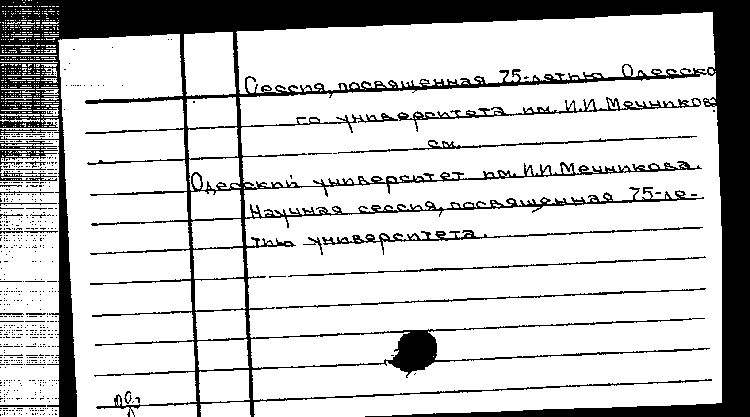 Сессия, посвященная 75-летию Одесско
го университета им. И.И. Мечникова
см.
Одесский университет им. И.И. Мечникова.
Научная сессия, посвященная 75-ле-
тию университета.